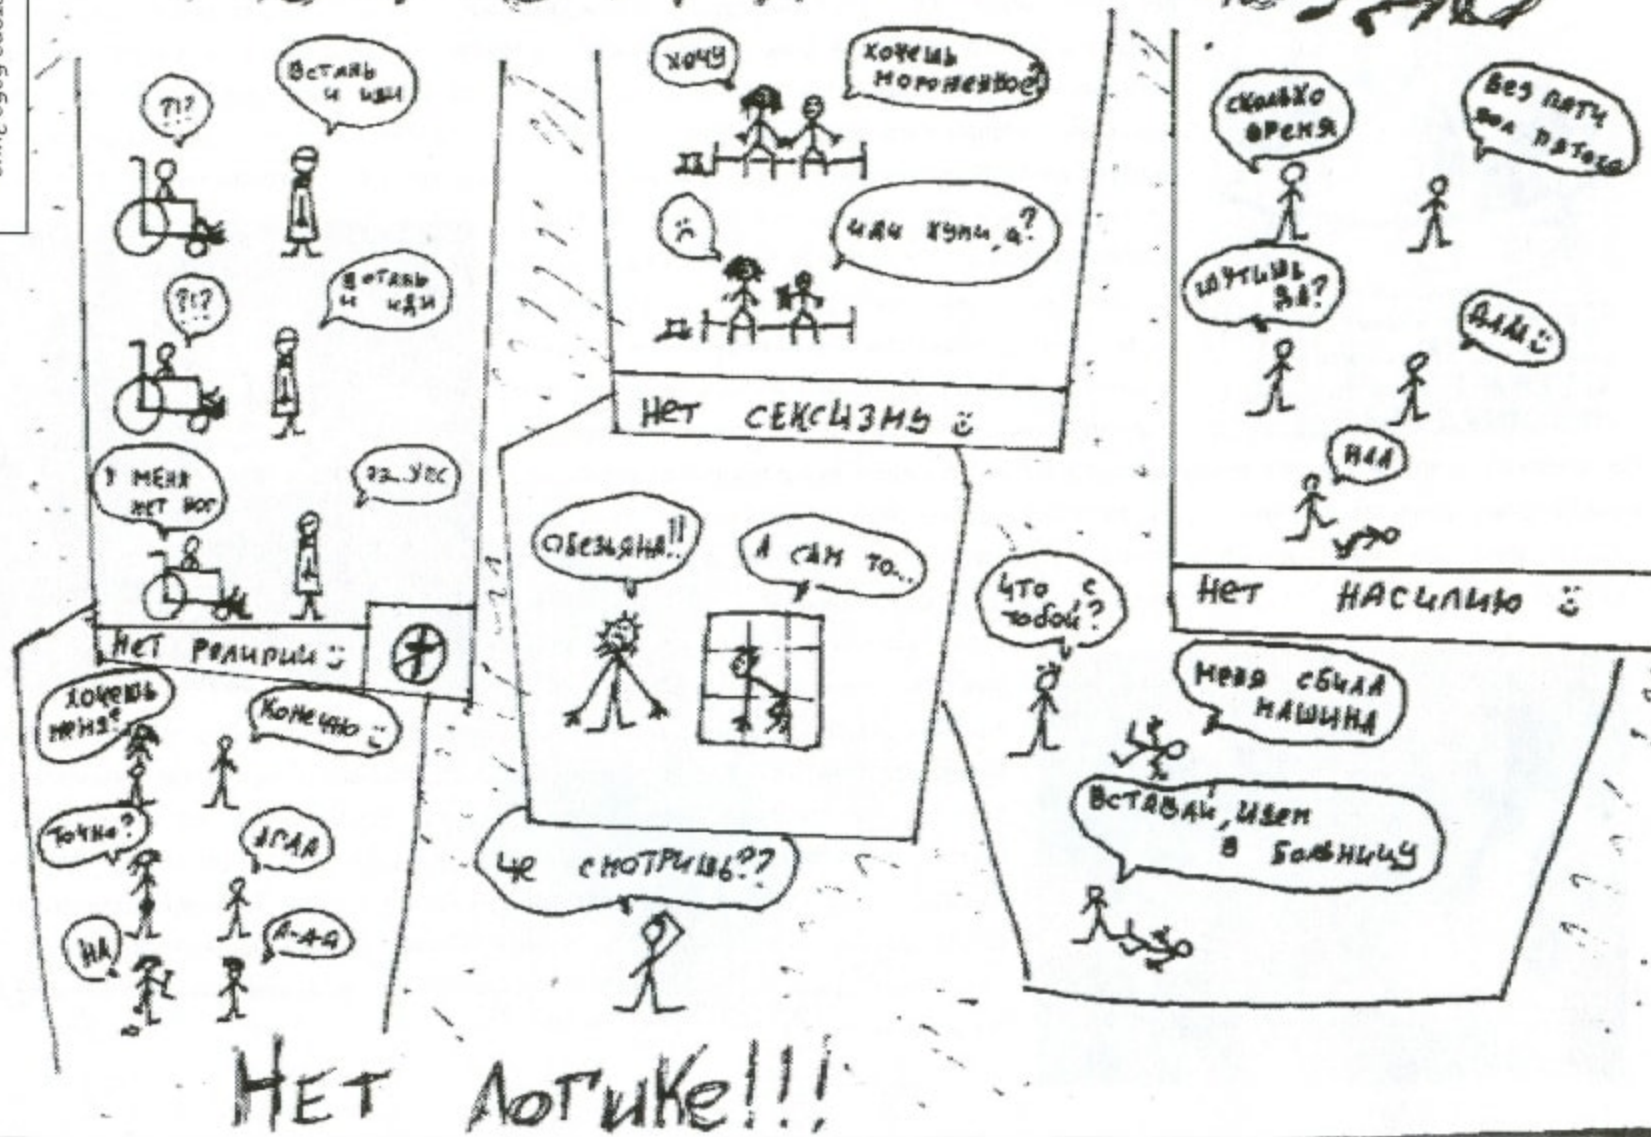 ?!?
Встань
и иди
?!?
Встань
и иди
У меня
нет ног
ээ_упс
Нет религии
хочу
хочешь
мороженное?
иди купи, а?
Нет сексизму
сколько
время
Без пяти
пол пятого
шутишь
да?
ДАА
НАА
Нет насилию
хочешь
меня?
Конечно
Точно?
АГАА
НА
А-А-А
Обезьяна!!
А сам то...
Че смотришь??
Что с
тобой?
меня сбила
машина
Вставай, идем
в больницу
Нет логике!!!